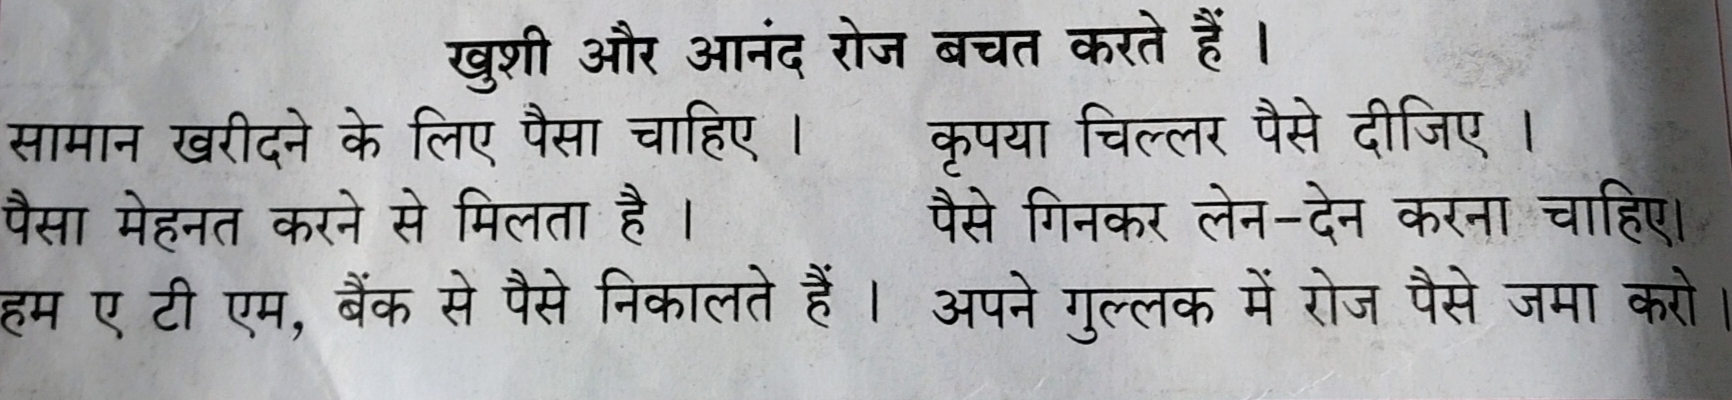 खुशी और आनंद रोज बचत करते हैं ।
सामान खरीदने के लिए पैसा चाहिए । कृपया चिल्लर पैसे दीजिए ।
पैसा मेहनत करने से मिलता है । पैसे गिनकर लेन-देन करना चाहिए।
हम ए टी एम, बैंक से पैसे निकालते हैं । अपने गुल्लक में रोज पैसे जमा करो ।